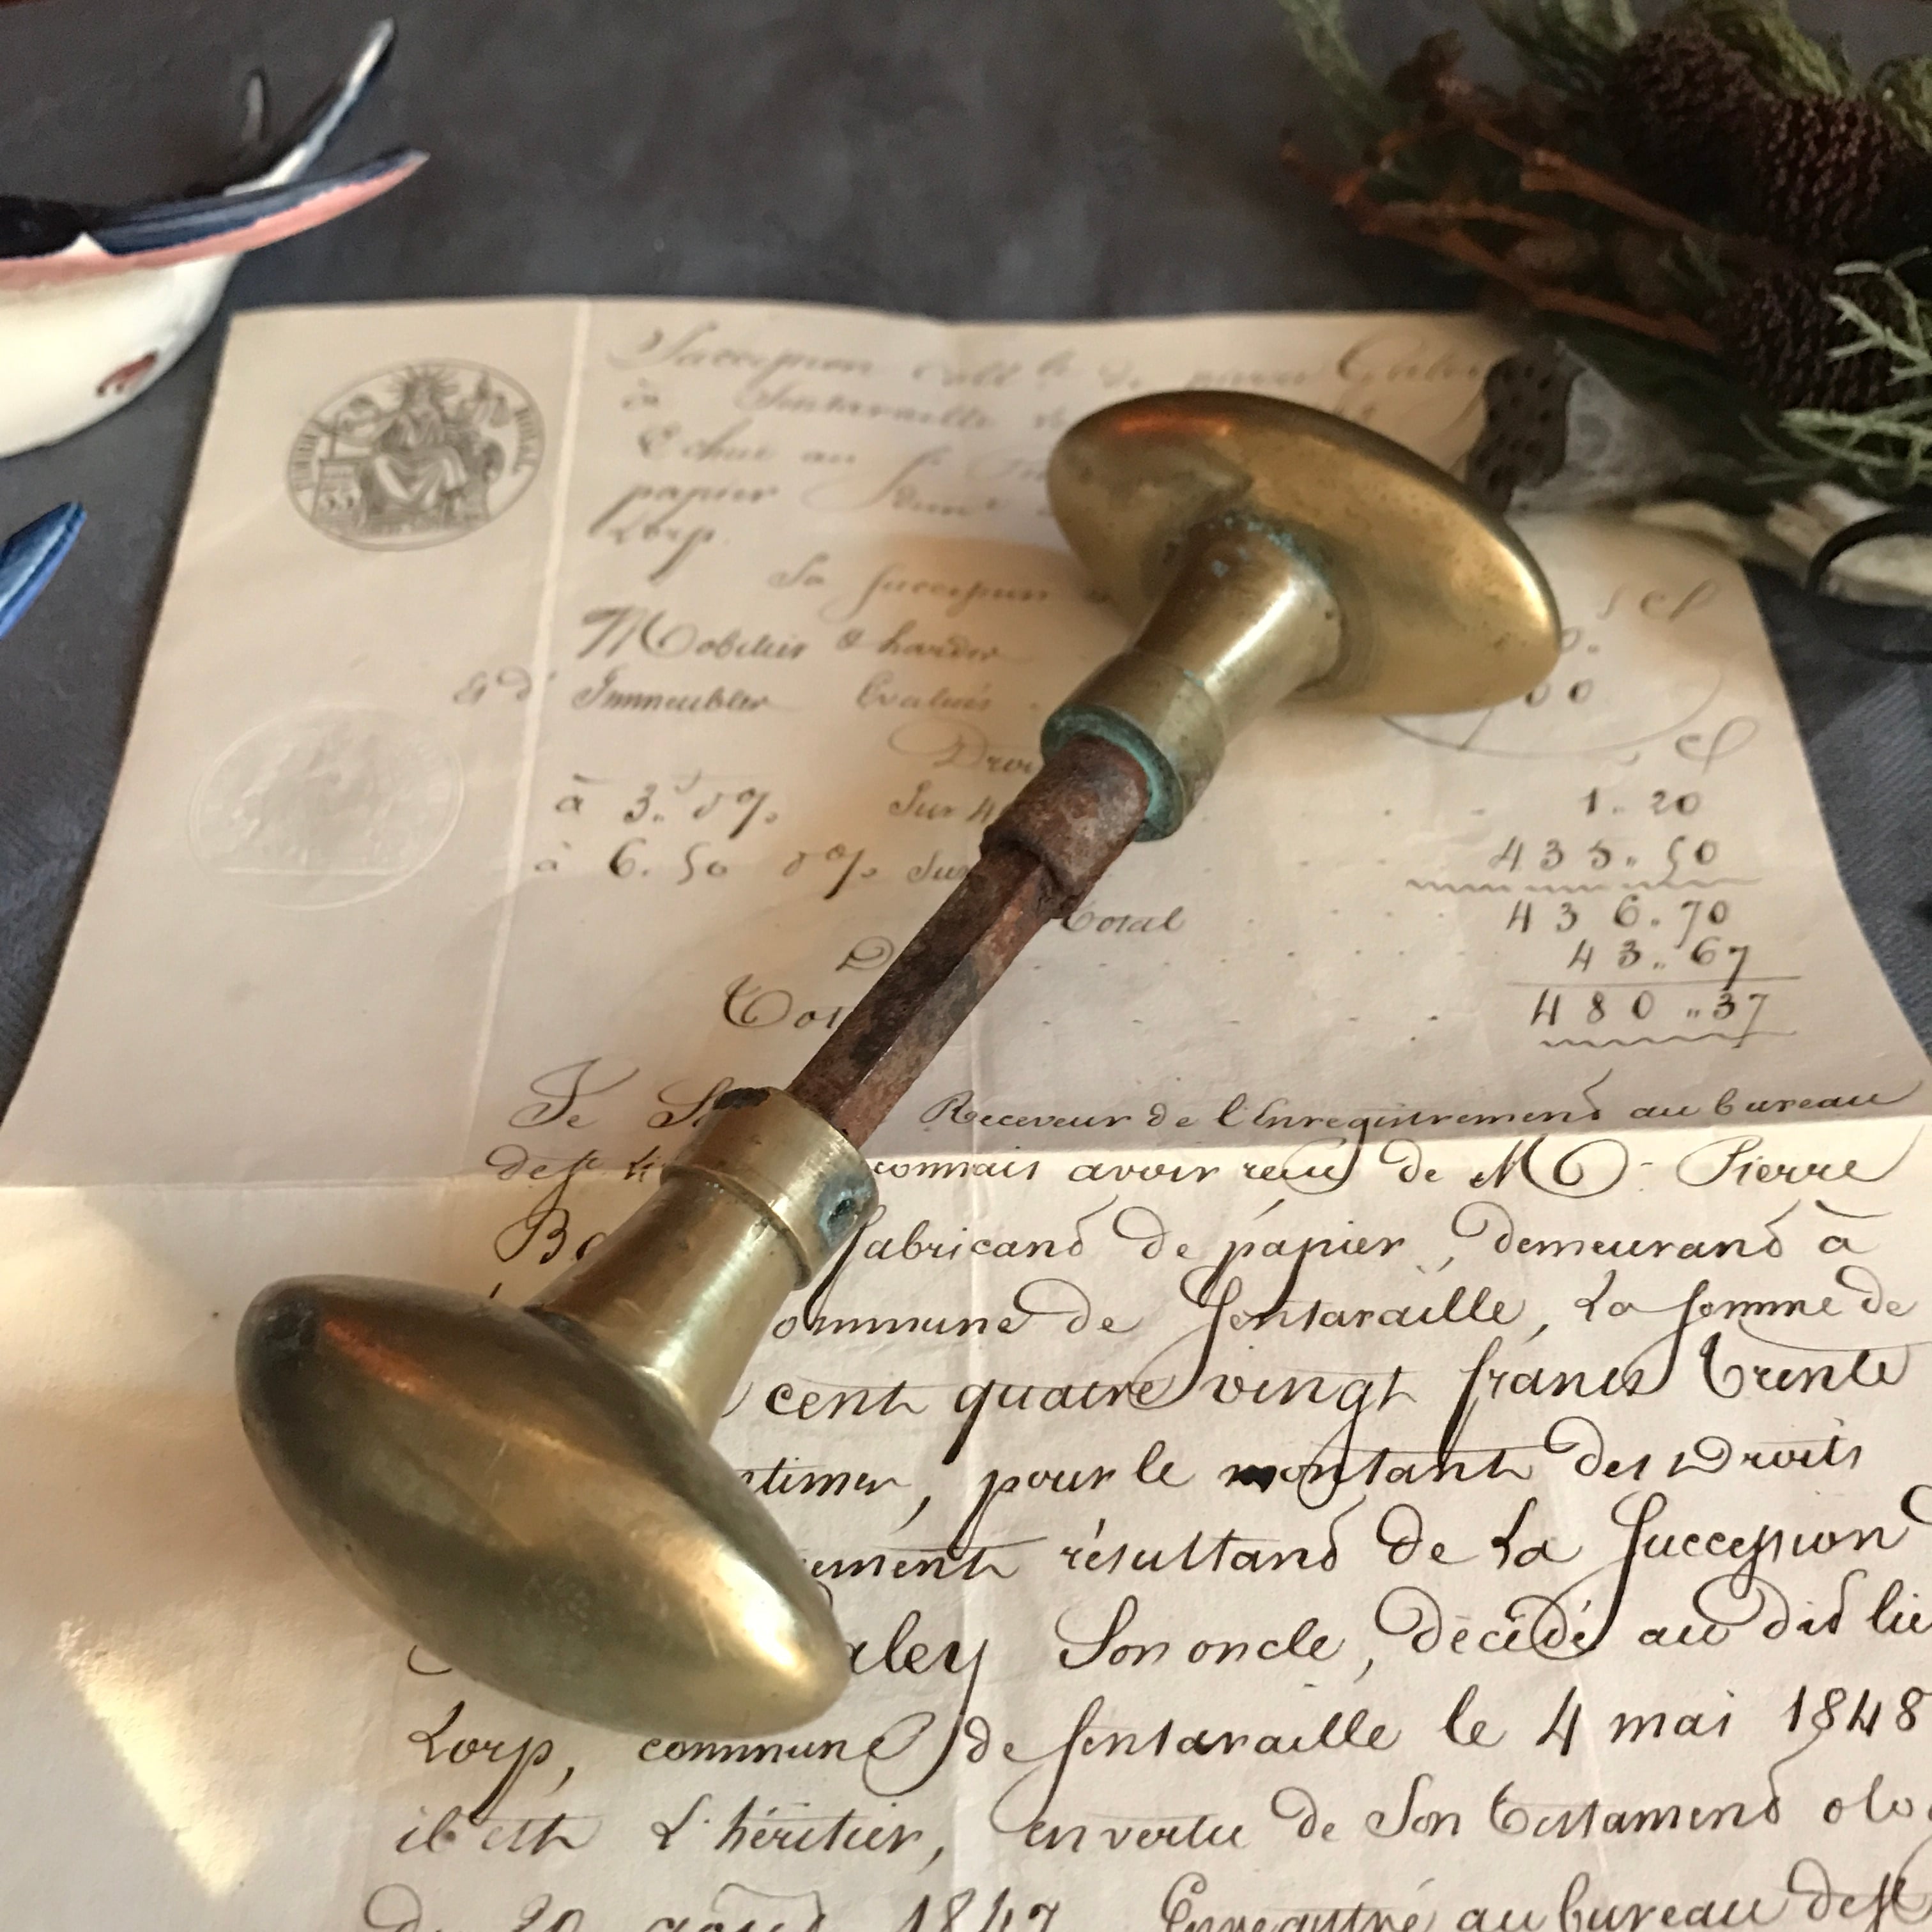 TIMBRE ROYAL
35
Succession Coll.le de
à Sentaraille
Echue au S.r
papier
Lorp.
La succession
Mobilier & hardes
Et d' Immeubles Evalués
00
Droi
à 3.. d %. Sur 4 1.. 20
à 6. 50 d %. Sur 435.. 50
Total 436. 70
D 43.. 67
Tot 480 ..37
Je S Receveur de l'Enregistrement au bureau
de St Li connais avoir reçu de M - Pierre
Ba fabricant de papier, demeurant à
ommune de Sentaraille, La somme de
cent quatre vingt francs trente
ntimes, pour le montant des Droits
ement résultant de La Succession
aley Son oncle, décédé au dit lie
Lorp, commune de Sentaraille le 4 mai 1848
il est L'héritier, en vertu de Son testament olo
Du 20 août 1847 Enregistré au bureau de St